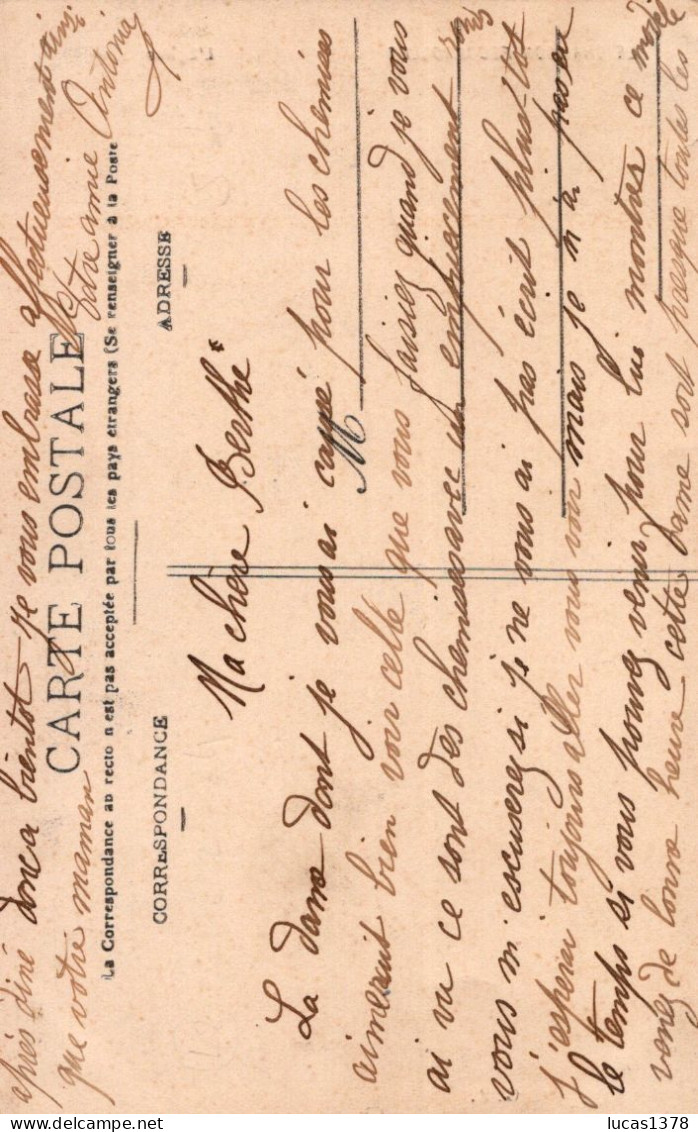 CARTE POSTALE
La Correspondance au recto n'est pas acceptée par tous les pays étrangers (Se renseigner à la Poste
CORRESPONDANCE
ADRESSE
Ma chère Berthe
La dame dont je vous ai causé pour les chemises
aimerait bien voir celle que vous faisiez quand je vous
ai vu ce sont des chemises avec un empiecement
vous m'escuserez si je ne vous ai pas écrit plus tôt
J'esperai toujours aller vous voir mais je n'ai pas eu
le temps si vous pouvez venir pour lui montrer ce modèle
venez de bonne heure cette dame sort presque toutes les
après diné donc a bientot je vous embrasse affectueusement ainsi
que votre maman Votre amie Antonia
delcampe.net
lucas1378